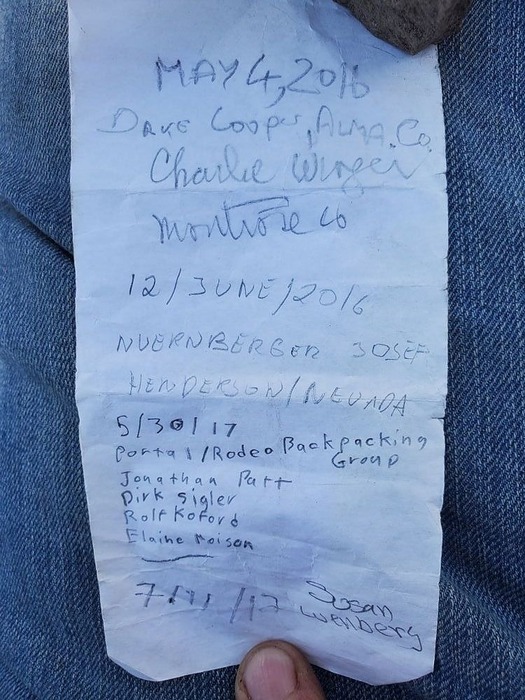 MAY 4, 2016
Dave Cooper, Alma, Co.
Charlie Winger
Montrose Co
12/JUNE/2016
NUERNBERGER JOSEF
HENDERSON/NEVADA
5/30/17
Portal/Rodeo Backpacking
Group
Jonathan Patt
Dirk Sigler
Rolf Koford
Elaine
7/ /17 Susan